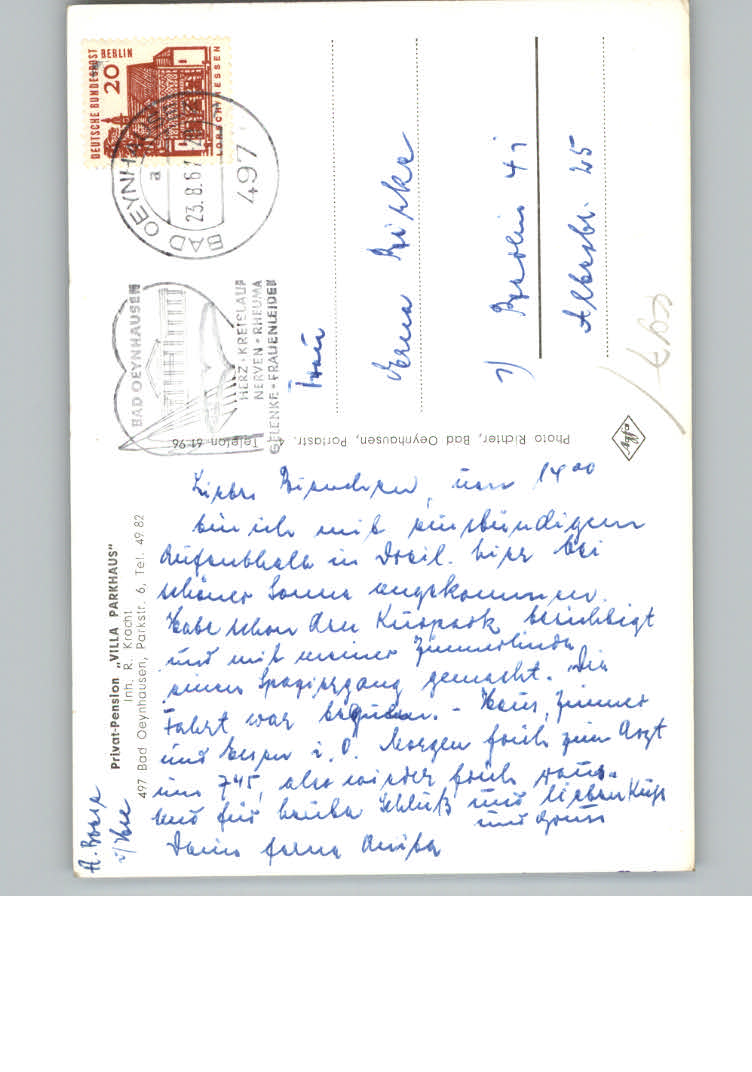 Privat-Pension „VILLA PARKHAUS"
Inh. R. Kracht
497 Bad Oeynhausen, Parkstr. 6, Tel. 49 82
Liebes Bienchen, um 14 00
bin ich mit einstündigem
Aufenthalt in Dreil. hier bei
schöner Sonne angekommen.
Habe schon den Kurpark besichtigt
und mit meiner Zimmerlinde
einen Spaziergang gemacht. Die
Fahrt war bequem. - Haus, Zimmer
und Essen i. O. Morgen früh zum Arzt
um 745, also wieder früh raus.
Und für heute Schluß und lieben Kuß
und Gruss
Deine Anita
A. Bosse
DEUTSCHE BUNDESPOST BERLIN
20
LORSCH/HESSEN
497 BAD OEYNHAUSEN
a
23.8.67
BAD OEYNHAUSEN
HERZ · KREISLAUF
NERVEN · RHEUMA
GELENKE · FRAUENLEIDEN
Photo Richter, Bad Oeynhausen, Portastr. 4, Telefon 61 96
Agfa
Frau
Erna
1/ Berlin 41
Albestr. 25